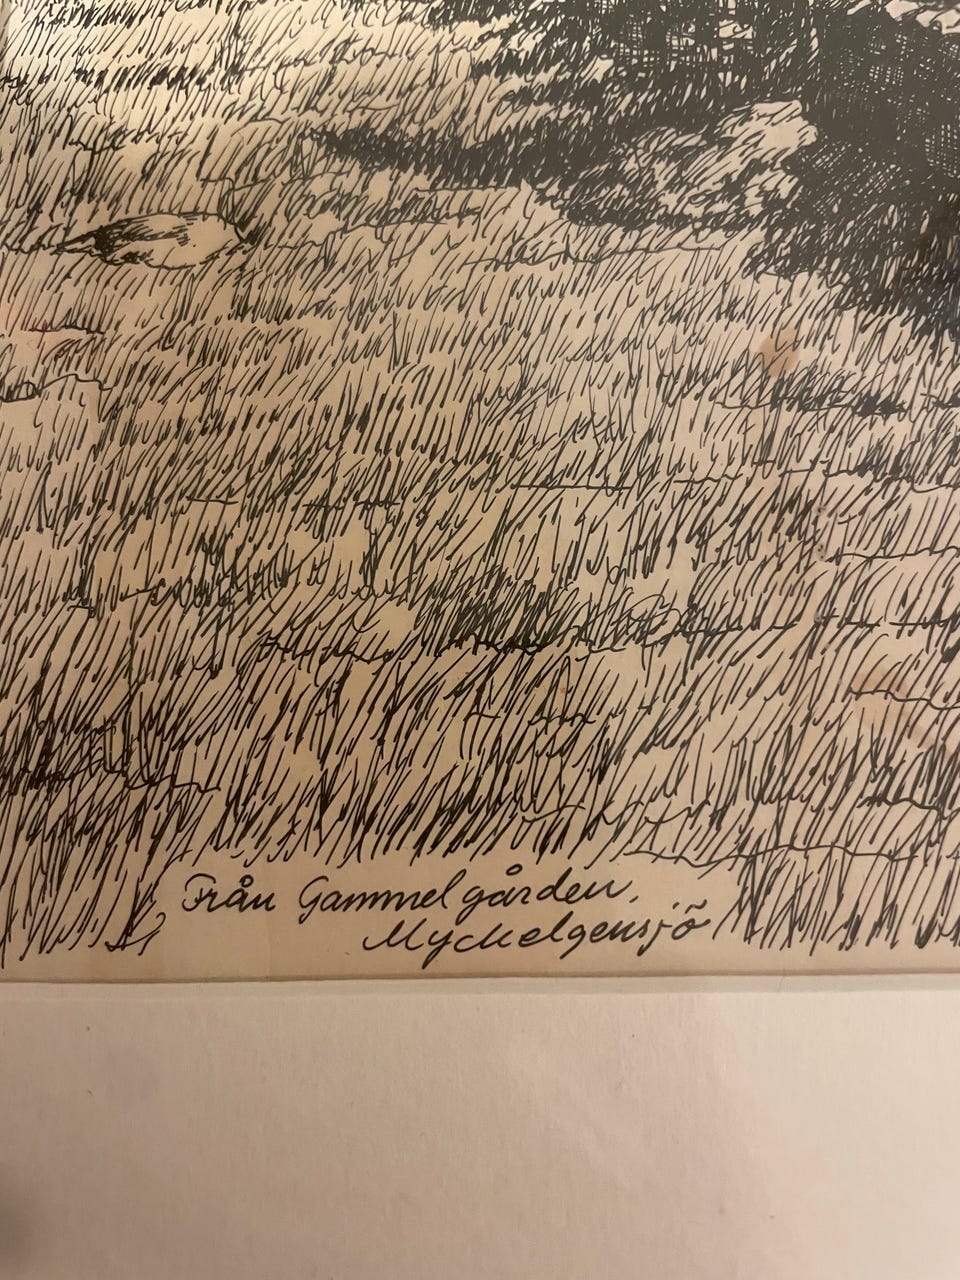 Från Gammelgården,
Myckelgensjö